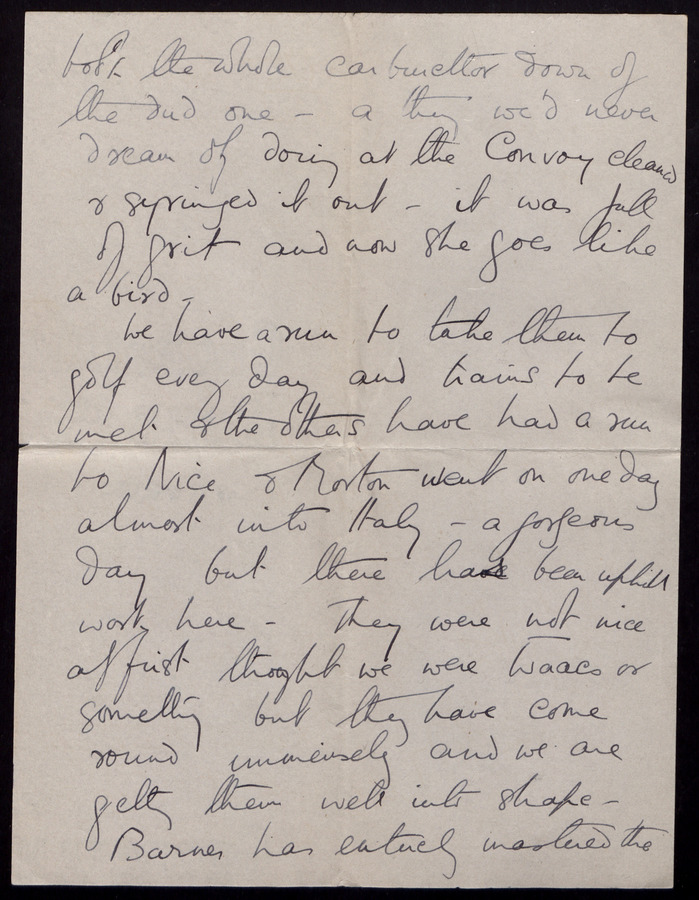 took the whole carburettor down of
the dud one - a thing we'd never
dream of doing at the Convoy cleaned
& syringed it out - it was full
of grit and now she goes like
a bird -
We have a run to take them to
golf every day and trains to be
met & the others have had a run
to Nice & Morton went on one day
almost into Italy - a gorgeous
day but there has been uphill
work here - They were not nice
at first thought we were Waacs or
something but they have come
round immensely and we are
getting them well into shape -
Barnes has entirely mastered the